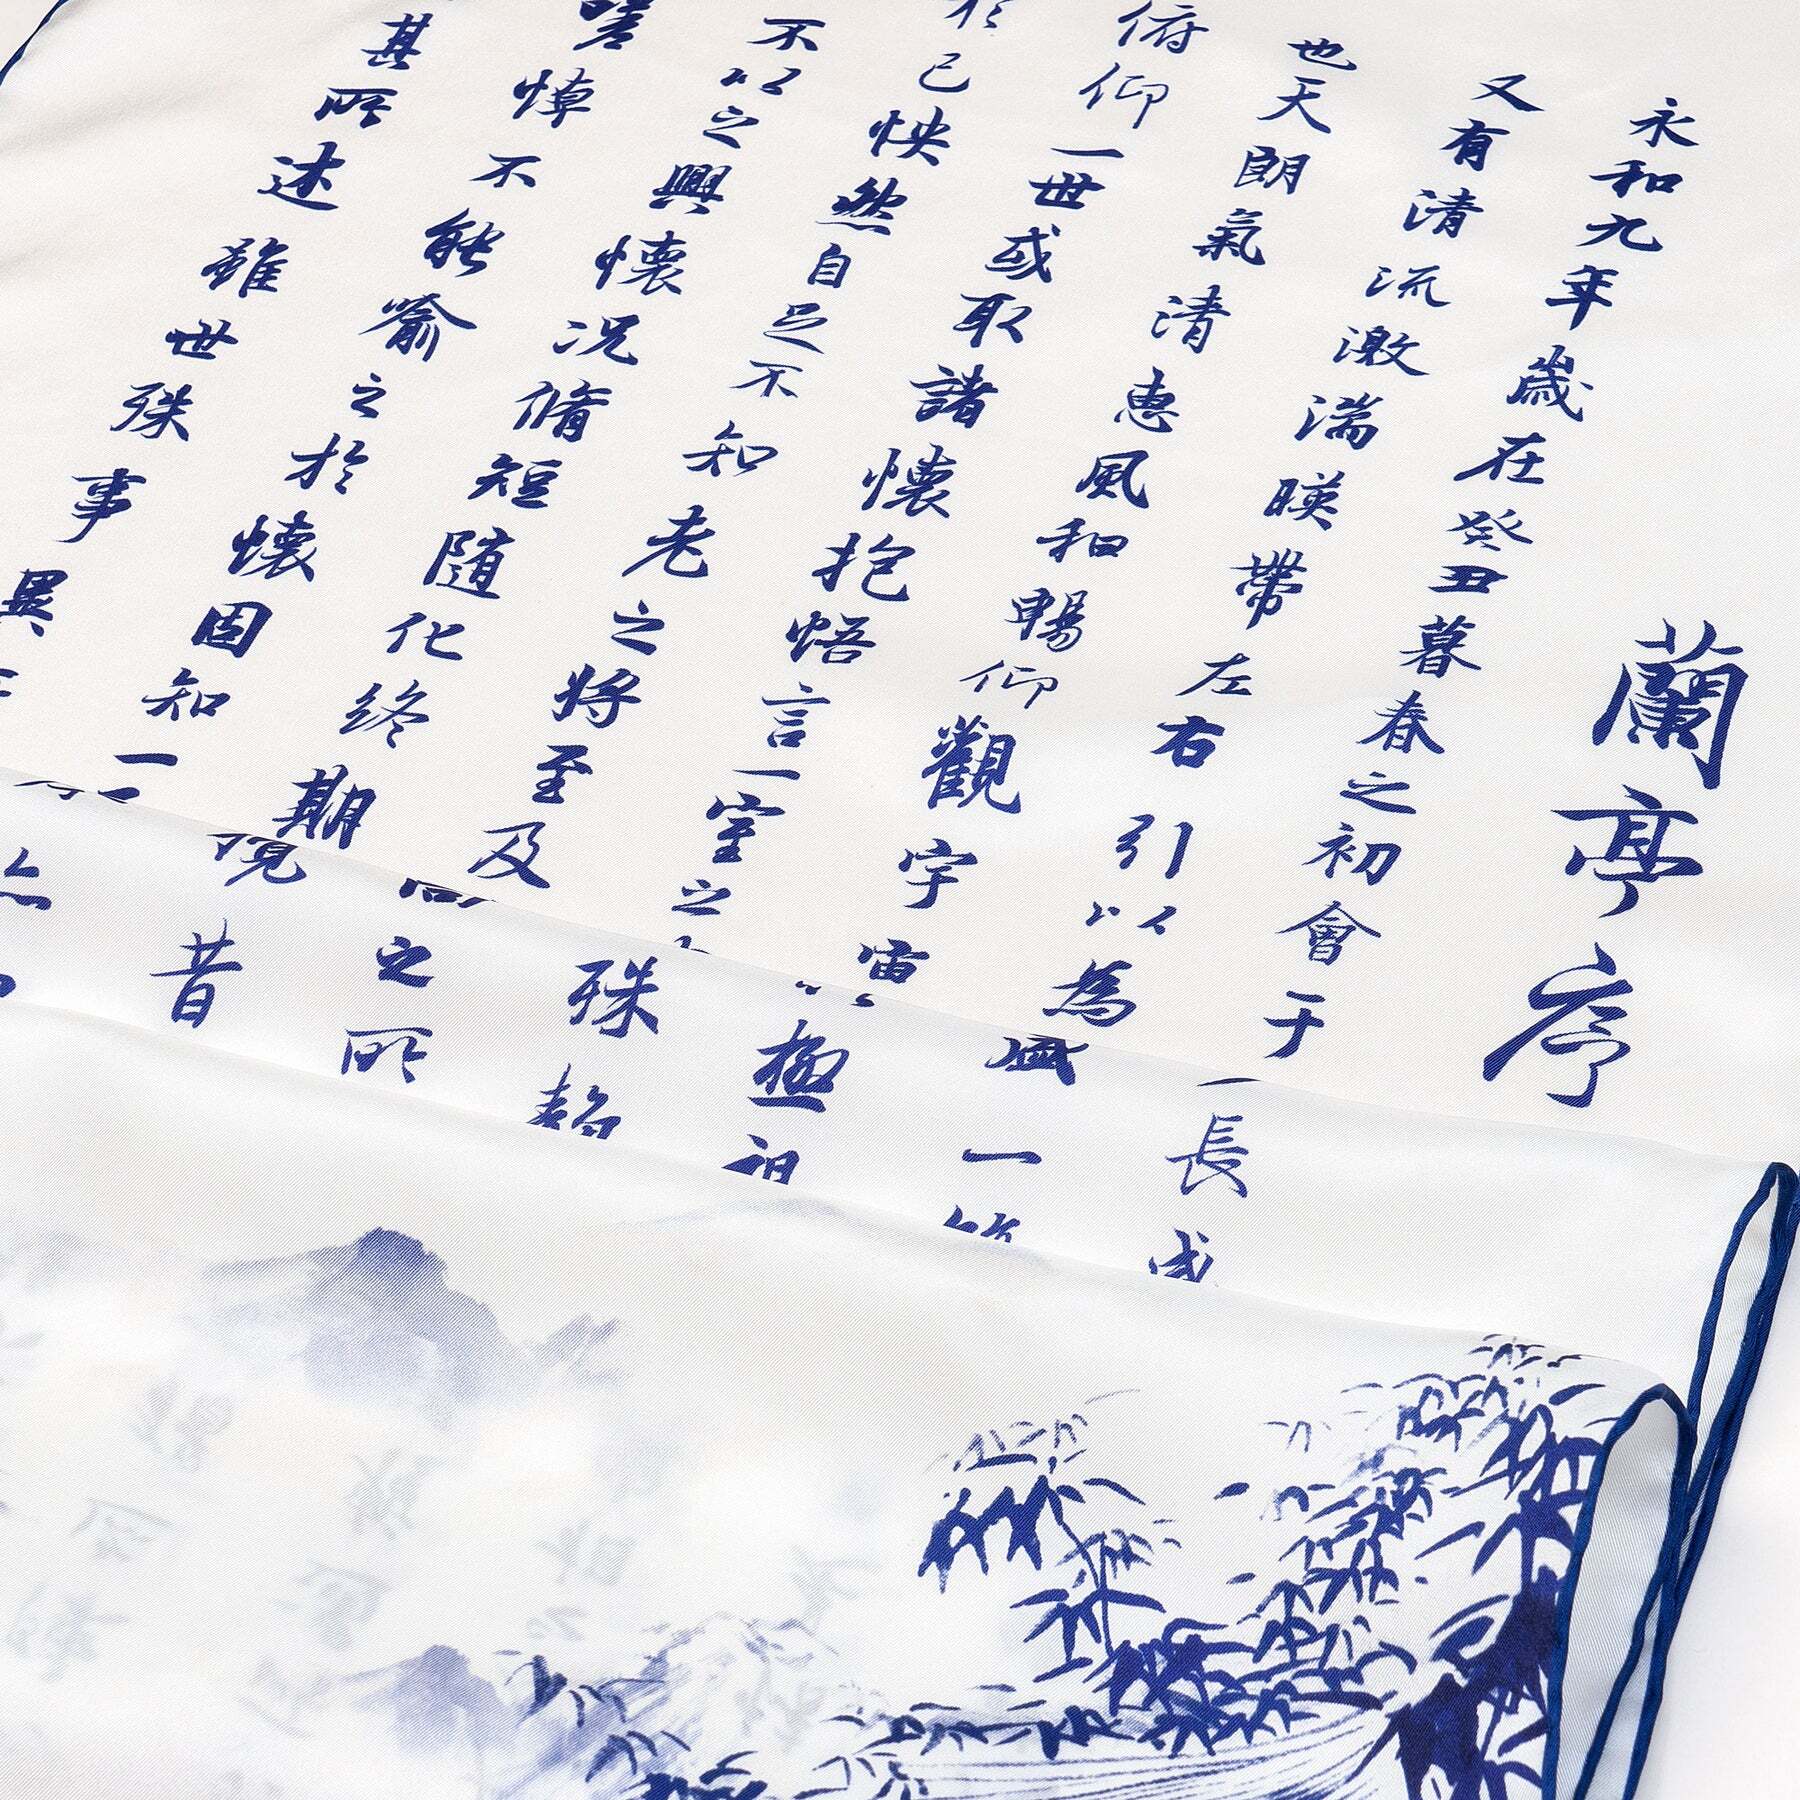 蘭亭序
永和九年歲在癸丑暮春之初會于
長
又有清流激湍暎帶左右引以為
一
也天朗氣清惠風和暢仰觀宇
極
俯仰一世或取諸懷抱悟言一室之
殊
己怏然自足不知老之將至及
之所
不以之興懷況脩短隨化終期
昔
嗟悼不能喻之於懷固知一
其所述雖世殊事異